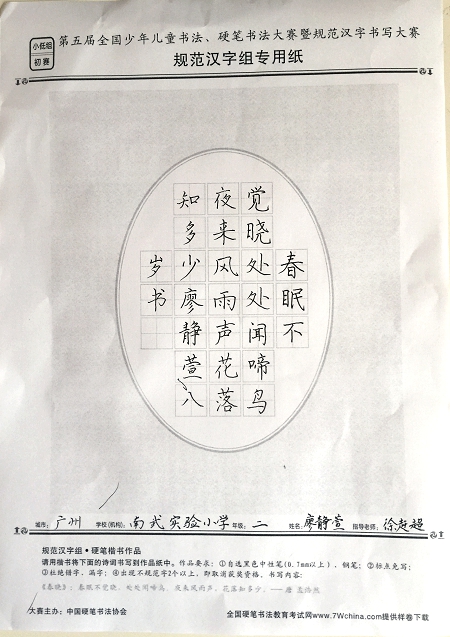 小低组
初赛
第五届全国少年儿童书法、硬笔书法大赛暨规范汉字书写大赛
规范汉字组专用纸
春眠不
觉晓处处闻啼鸟
夜来风雨声花落
知多少廖静萱八
岁书
城市：广州 学校(机构)：南武实验小学 年级：二 姓名：廖静萱 指导老师：徐超超
规范汉字组·硬笔楷书作品
请用楷书将下面的诗词书写到作品纸中。作品要求：①自选黑色中性笔(0.7mm以上)、钢笔；②标点免写；
③杜绝错字、漏字；④出现不规范字2个以上，即取消获奖资格。书写内容：
《春晓》：春眠不觉晓，处处闻啼鸟。夜来风雨声，花落知多少。——唐 孟浩然
大赛主办：中国硬笔书法协会 全国硬笔书法教育考试网www.7Wchina.com提供样卷下载